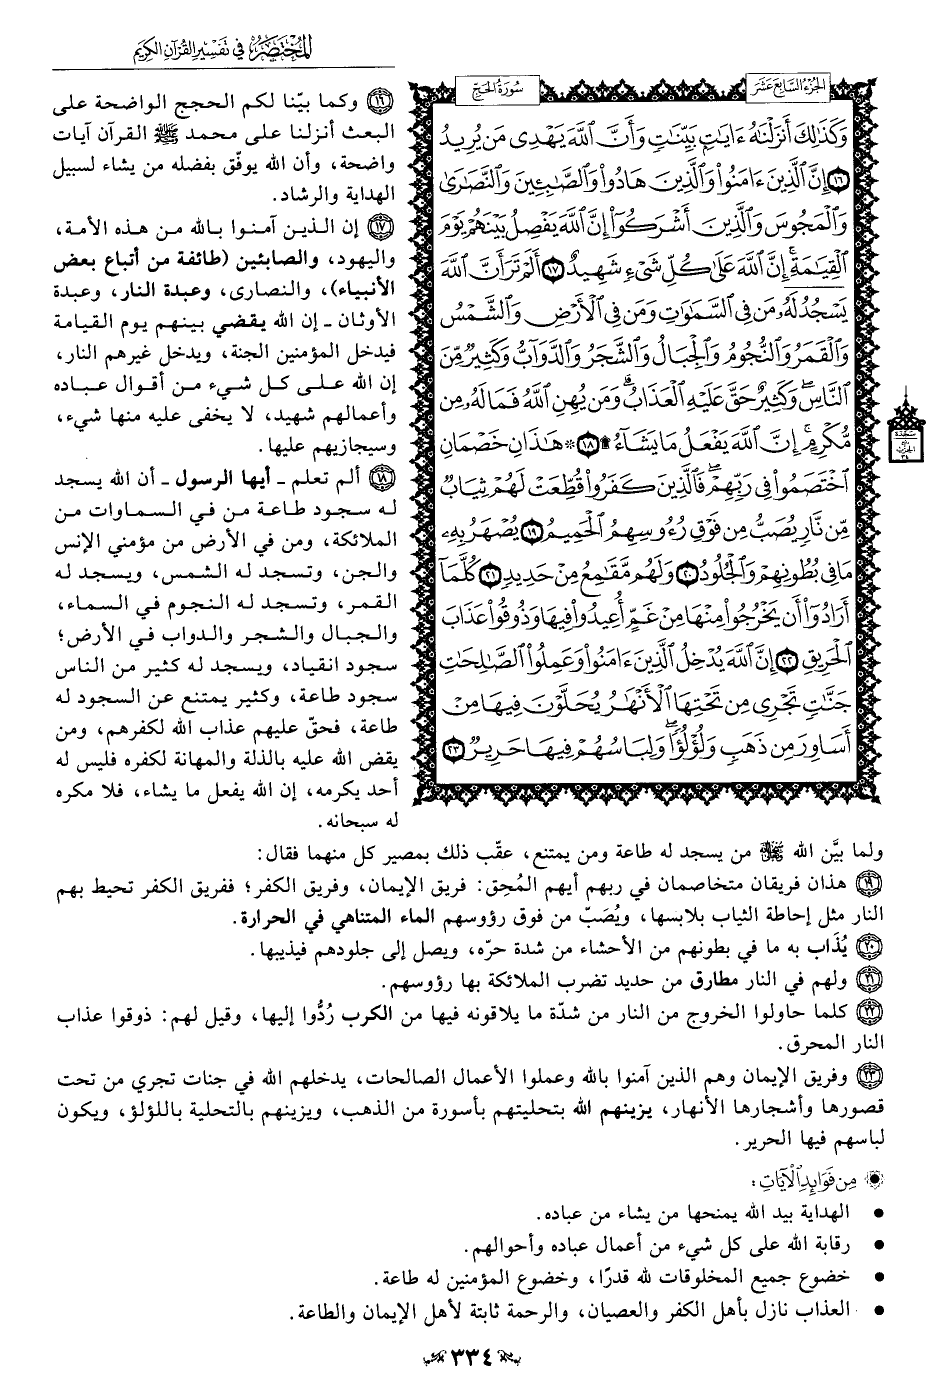 المختصر في تفسير القرآن الكريم
الجزء السابع عشر
سورة الحج
وَكَذَٰلِكَ أَنزَلْنَٰهُ ءَايَٰتٍۭ بَيِّنَٰتٍ وَأَنَّ ٱللَّهَ يَهْدِى مَن يُرِيدُ
١٦ إِنَّ ٱلَّذِينَ ءَامَنُوا۟ وَٱلَّذِينَ هَادُوا۟ وَٱلصَّٰبِـِٔينَ وَٱلنَّصَٰرَىٰ
وَٱلْمَجُوسَ وَٱلَّذِينَ أَشْرَكُوٓا۟ إِنَّ ٱللَّهَ يَفْصِلُ بَيْنَهُمْ يَوْمَ
ٱلْقِيَٰمَةِ ۚ إِنَّ ٱللَّهَ عَلَىٰ كُلِّ شَىْءٍ شَهِيدٌ ١٧ أَلَمْ تَرَ أَنَّ ٱللَّهَ
يَسْجُدُ لَهُۥ مَن فِى ٱلسَّمَٰوَٰتِ وَمَن فِى ٱلْأَرْضِ وَٱلشَّمْسُ
وَٱلْقَمَرُ وَٱلنُّجُومُ وَٱلْجِبَالُ وَٱلشَّجَرُ وَٱلدَّوَآبُّ وَكَثِيرٌ مِّنَ
ٱلنَّاسِ ۖ وَكَثِيرٌ حَقَّ عَلَيْهِ ٱلْعَذَابُ ۗ وَمَن يُهِنِ ٱللَّهُ فَمَا لَهُۥ مِن
مُّكْرِمٍ ۚ إِنَّ ٱللَّهَ يَفْعَلُ مَا يَشَآءُ ۩ ١٨ ۞ هَٰذَانِ خَصْمَانِ
ٱخْتَصَمُوا۟ فِى رَبِّهِمْ ۖ فَٱلَّذِينَ كَفَرُوا۟ قُطِّعَتْ لَهُمْ ثِيَابٌ
مِّن نَّارٍ يُصَبُّ مِن فَوْقِ رُءُوسِهِمُ ٱلْحَمِيمُ ١٩ يُصْهَرُ بِهِۦ
مَا فِى بُطُونِهِمْ وَٱلْجُلُودُ ٢٠ وَلَهُم مَّقَٰمِعُ مِنْ حَدِيدٍ ٢١ كُلَّمَآ
أَرَادُوٓا۟ أَن يَخْرُجُوا۟ مِنْهَا مِنْ غَمٍّ أُعِيدُوا۟ فِيهَا وَذُوقُوا۟ عَذَابَ
ٱلْحَرِيقِ ٢٢ إِنَّ ٱللَّهَ يُدْخِلُ ٱلَّذِينَ ءَامَنُوا۟ وَعَمِلُوا۟ ٱلصَّٰلِحَٰتِ
جَنَّٰتٍ تَجْرِى مِن تَحْتِهَا ٱلْأَنْهَٰرُ يُحَلَّوْنَ فِيهَا مِنْ
أَسَاوِرَ مِن ذَهَبٍ وَلُؤْلُؤًا ۖ وَلِبَاسُهُمْ فِيهَا حَرِيرٌ ٢٣
سجدة
١٦ وكما بيّنا لكم الحجج الواضحة على
البعث أنزلنا على محمد ﷺ القرآن آيات
واضحة، وأن الله يوفّق بفضله من يشاء لسبيل
الهداية والرشاد.
١٧ إن الذين آمنوا بالله من هذه الأمة،
واليهود، والصابئين (طائفة من أتباع بعض
الأنبياء)، والنصارى، وعبدة النار، وعبدة
الأوثان ـ إن الله يقضي بينهم يوم القيامة
فيدخل المؤمنين الجنة، ويدخل غيرهم النار،
إن الله على كل شيء من أقوال عباده
وأعمالهم شهيد، لا يخفى عليه منها شيء،
وسيجازيهم عليها.
١٨ ألم تعلم ـ أيها الرسول ـ أن الله يسجد
له سجود طاعة من في السماوات من
الملائكة، ومن في الأرض من مؤمني الإنس
والجن، وتسجد له الشمس، ويسجد له
القمر، وتسجد له النجوم في السماء،
والجبال والشجر والدواب في الأرض؛
سجود انقياد، ويسجد له كثير من الناس
سجود طاعة، وكثير يمتنع عن السجود له
طاعة، فحقّ عليهم عذاب الله لكفرهم، ومن
يقض الله عليه بالذلة والمهانة لكفره فليس له
أحد يكرمه، إن الله يفعل ما يشاء، فلا مكره
له سبحانه.
ولما بيَّن الله ﷻ من يسجد له طاعة ومن يمتنع، عقّب ذلك بمصير كل منهما فقال:
١٩ هذان فريقان متخاصمان في ربهم أيهم المُحِق: فريق الإيمان، وفريق الكفر؛ ففريق الكفر تحيط بهم
النار مثل إحاطة الثياب بلابسها، ويُصَبّ من فوق رؤوسهم الماء المتناهي في الحرارة.
٢٠ يُذَاب به ما في بطونهم من الأحشاء من شدة حرّه، ويصل إلى جلودهم فيذيبها.
٢١ ولهم في النار مطارق من حديد تضرب الملائكة بها رؤوسهم.
٢٢ كلما حاولوا الخروج من النار من شدّة ما يلاقونه فيها من الكرب رُدُّوا إليها، وقيل لهم: ذوقوا عذاب
النار المحرق.
٢٣ وفريق الإيمان وهم الذين آمنوا بالله وعملوا الأعمال الصالحات، يدخلهم الله في جنات تجري من تحت
قصورها وأشجارها الأنهار، يزينهم الله بتحليتهم بأسورة من الذهب، ويزينهم بالتحلية باللؤلؤ، ويكون
لباسهم فيها الحرير.
من فوائد الآيات:
● الهداية بيد الله يمنحها من يشاء من عباده.
● رقابة الله على كل شيء من أعمال عباده وأحوالهم.
● خضوع جميع المخلوقات لله قدرًا، وخضوع المؤمنين له طاعة.
● العذاب نازل بأهل الكفر والعصيان، والرحمة ثابتة لأهل الإيمان والطاعة.
٣٣٤